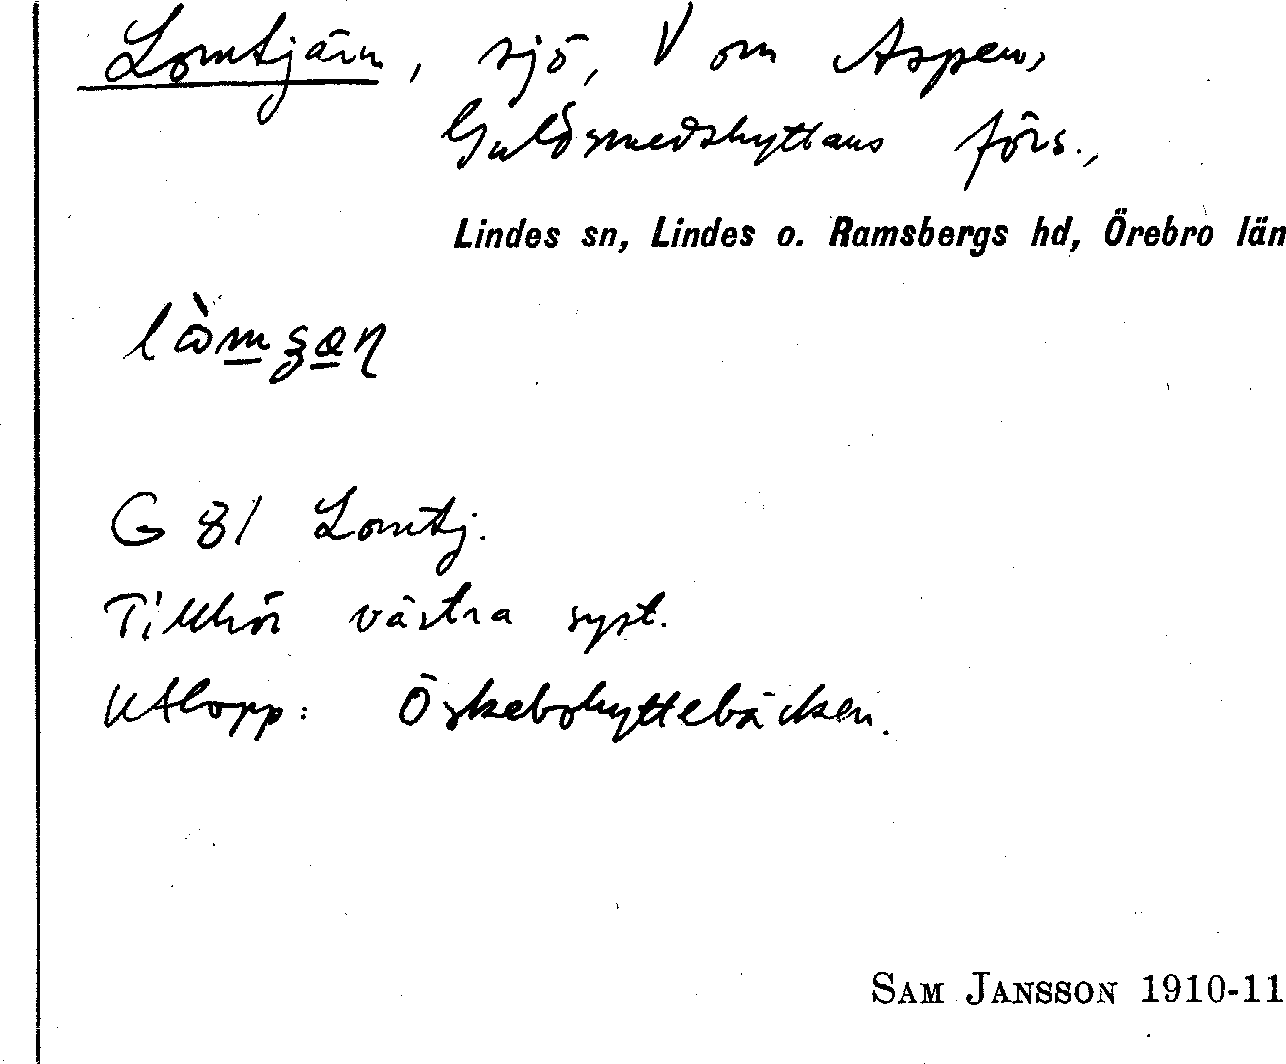 Lomtjärn, sjö, V om Aspen,
Guldsmedshyttans förs.,
Lindes sn, Lindes o. Ramsbergs hd, Örebro län
G 81 Lomtj.
Tillhör västra syst.
Utlopp: Öskebohyttebäcken.
SAM JANSSON 1910-11